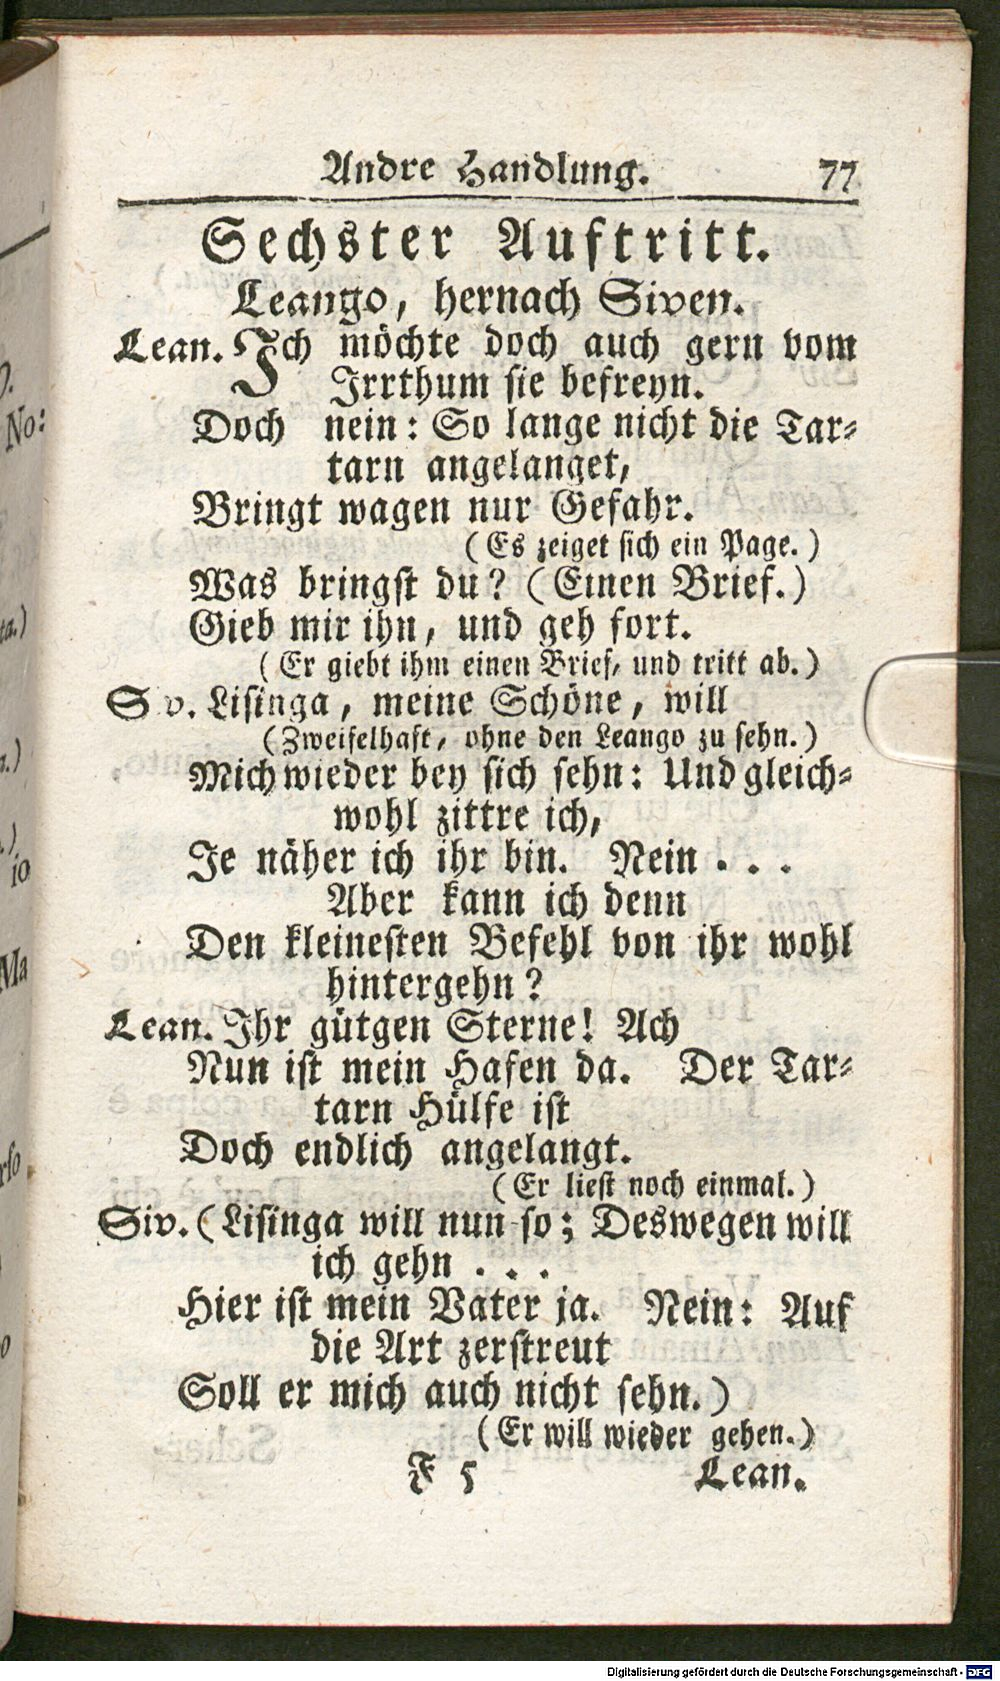 Andre Handlung. 77
Sechster Auftritt.
Leango, hernach Siven.
Lean. Ich möchte doch auch gern vom
Irrthum sie befreyn.
Doch nein: So lange nicht die Tar-
tarn angelanget,
Bringt wagen nur Gefahr.
(Es zeiget sich ein Page.)
Was bringst du? (Einen Brief.)
Gieb mir ihn, und geh fort.
(Er giebt ihm einen Brief, und tritt ab.)
Siv. Lisinga, meine Schöne, will
(Zweifelhaft, ohne den Leango zu sehn.)
Mich wieder bey sich sehn: Und gleich-
wohl zittre ich,
Je näher ich ihr bin. Nein . . .
Aber kann ich denn
Den kleinesten Befehl von ihr wohl
hintergehn?
Lean. Ihr gütgen Sterne! Ach
Nun ist mein Hafen da. Der Tar-
tarn Hülfe ist
Doch endlich angelangt.
(Er liest noch einmal.)
Siv. (Lisinga will nun so; Deswegen will
ich gehn . . .
Hier ist mein Vater ja. Nein: Auf
die Art zerstreut
Soll er mich auch nicht sehn.)
(Er will wieder gehen.)
F 5 Lean.
No:
ta.)
a.)
io
Ma
rso
Digitalisierung gefördert durch die Deutsche Forschungsgemeinschaft - DFG